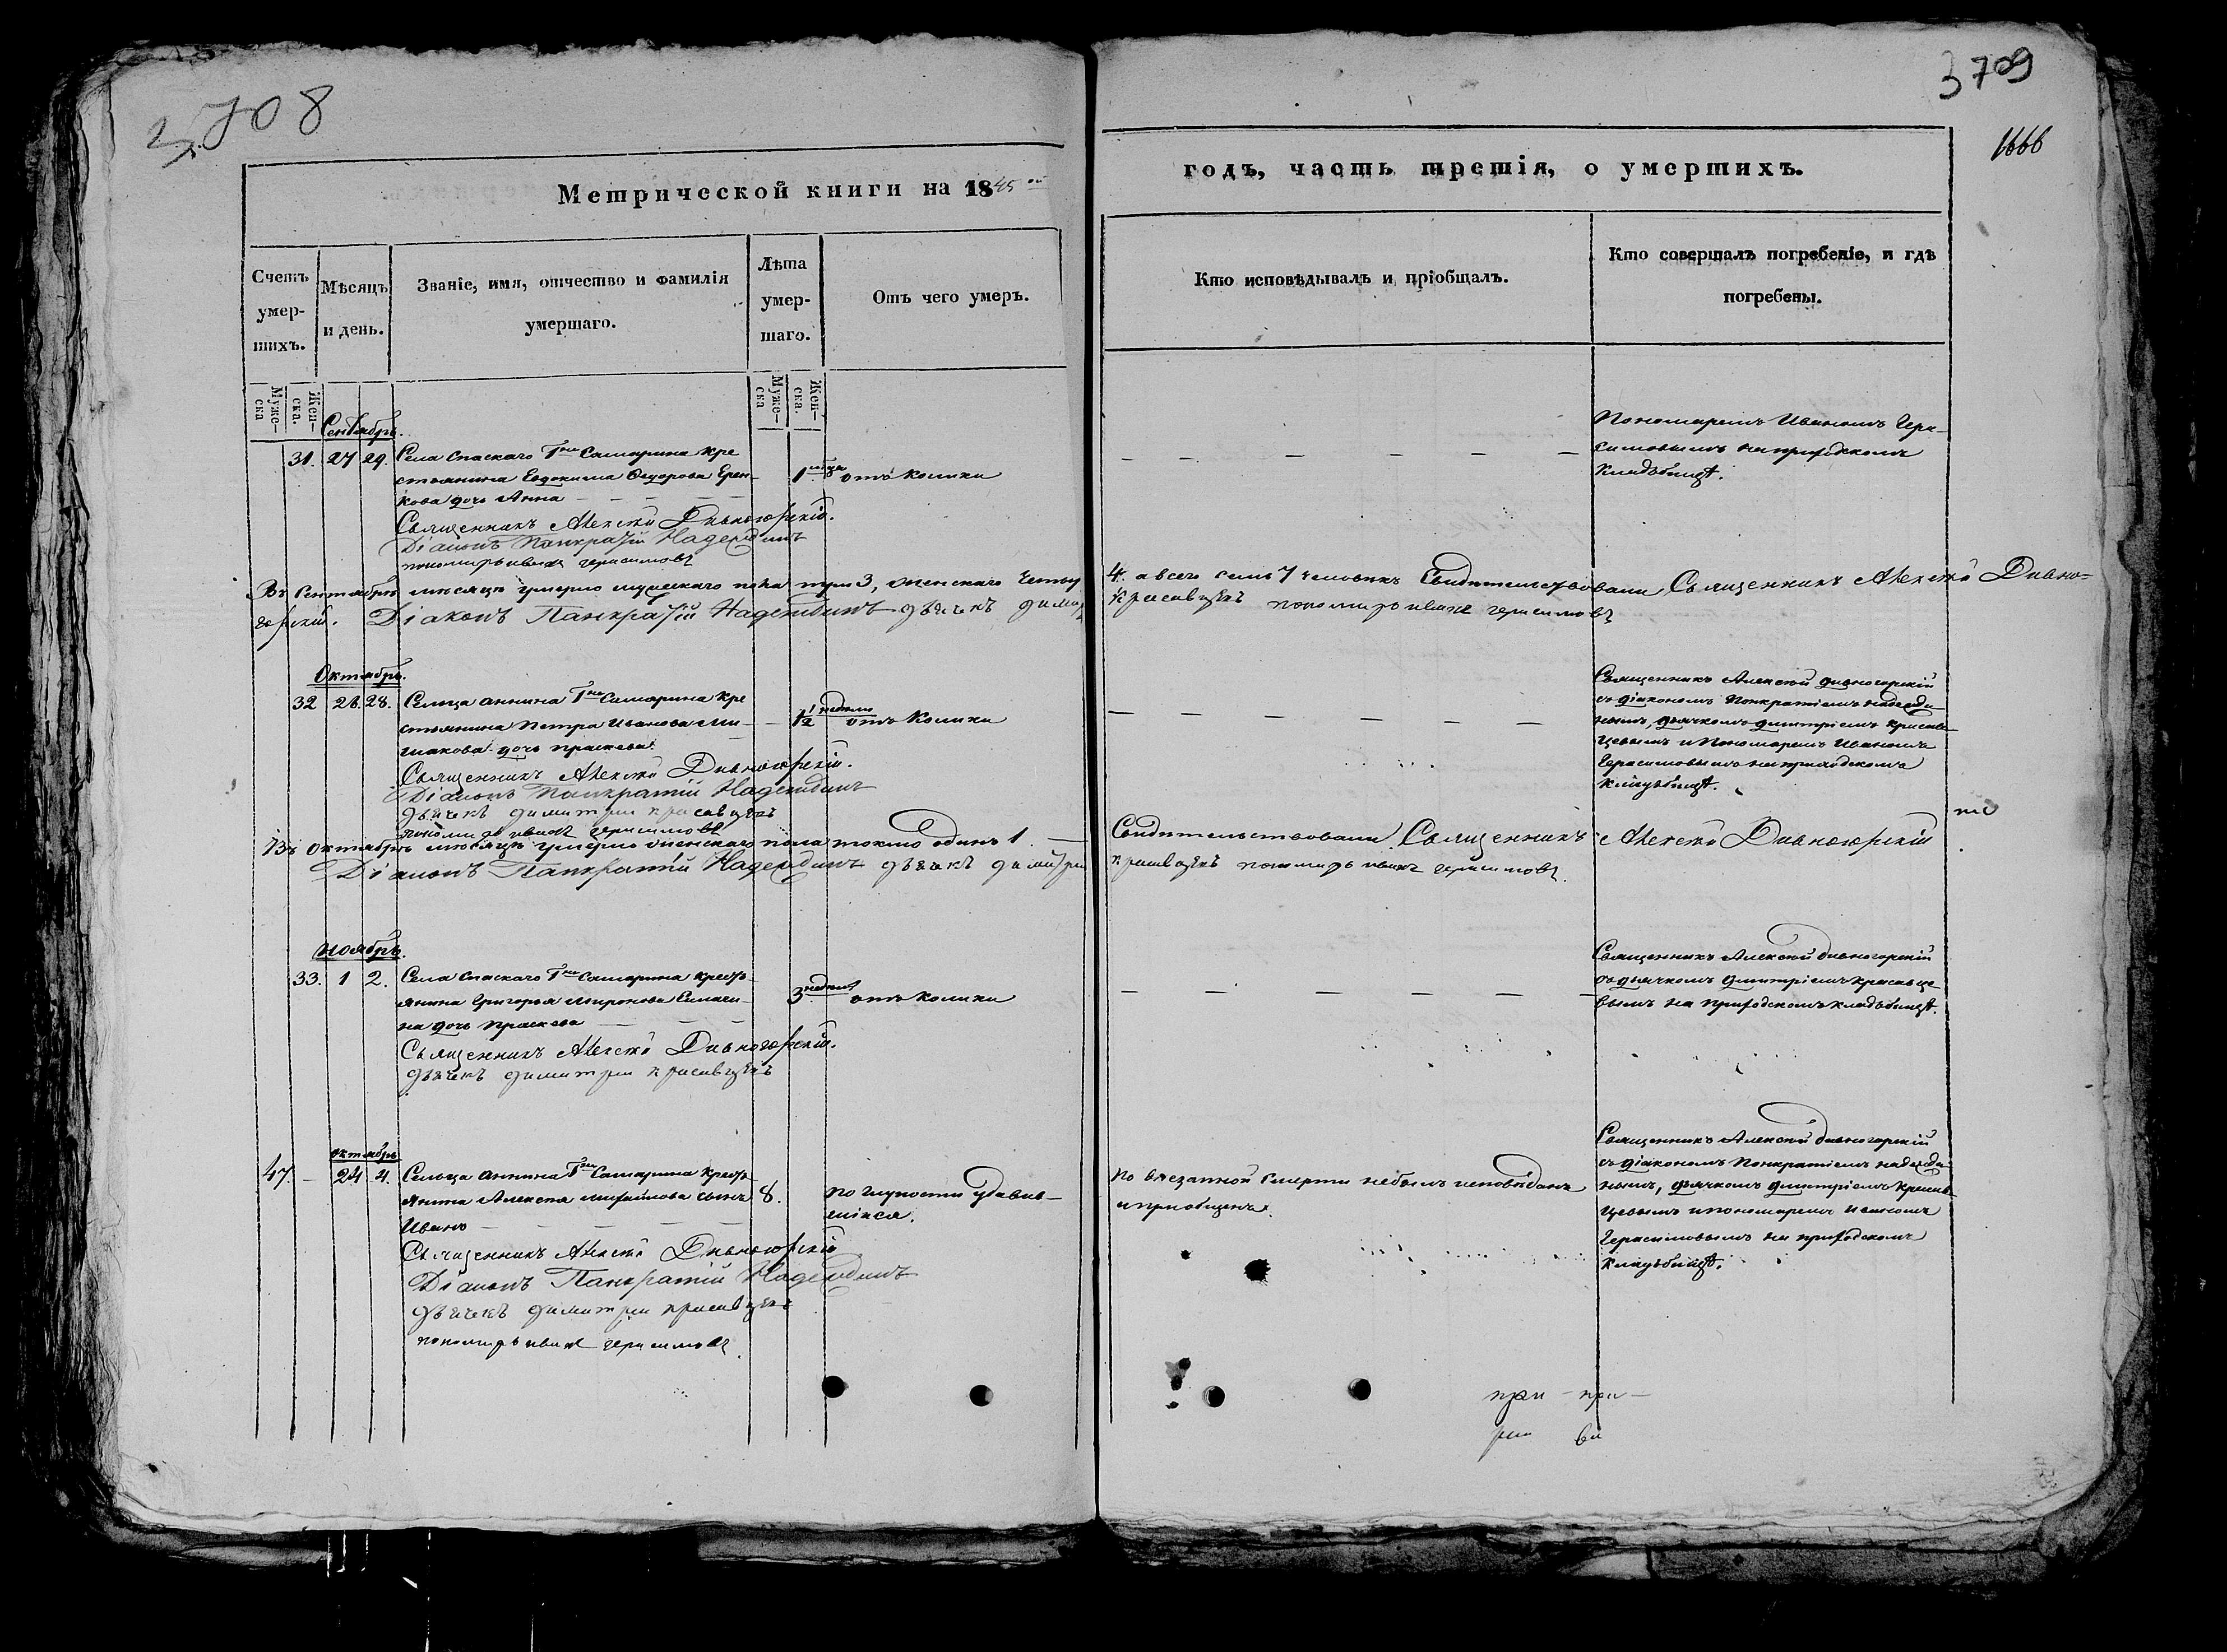 3708
3709
1666
Метрической книги на 1845 ой
годъ, часть третія, о умершихъ.
Счетъ умер-шихъ.
Мѣсяцъ и день.
Званіе, имя, отчество и фамилія умершаго.
Лѣта умер-шаго.
Отъ чего умеръ.
Кто исповѣдывалъ и пріобщалъ.
Кто совершалъ погребеніе, и гдѣ погребены.
Муже-ска
Жен-ска.
Муже-ска
Жен-ска.
Сентябрь.
31. 27 29. Села Спаскаго Гна Самарина кре
стьянина Евдокима Федорова Ерен-
кова дочь Анна
1 отъ колики
Пономаремъ Иваномъ Гера-
симовымъ на приходскомъ
кладбищѣ.
Священникъ Алексѣй Дивногорскій.
Діаконъ Панкратій Надеждинъ
пономарь иванъ герасимовъ
Въ Сентябрѣ мѣсяцѣ умерло мужескаго пола три 3, женскаго четыр
4. а всего семь 7 человекъ Свидѣтельствовали Священникъ Алексѣй Дивно-
горскій. Діаконъ Панкратій Надеждинъ дьячекъ дими
красавцевъ пономарь иванъ герасимовъ
Октябрь.
32 26 28. Сельца Аннина Гна Самарина кре
стьянина Петра Иванова
дочь Праскева
1/2 недѣли отъ колики
Священникъ Алексѣй Дивногорскій
съ діакономъ Понкратіемъ Надежди-
нымъ, дьячкомъ Димитріемъ Красав-
цевымъ и Пономаремъ Иваномъ
Герасимовымъ на приходскомъ
кладбищѣ.
Священникъ Алексѣй Дивногорскій.
Діаконъ Панкратій Надеждинъ
дьячекъ димитри красавцевъ
пономарь иванъ герасимовъ
Въ Октябрѣ мѣсяцѣ умерло женскаго пола токмо одинъ 1.
Свидѣтельствовали Священникъ Алексѣй Дивногорскій
Діаконъ Панкратій Надеждинъ дьячекъ димитри
красавцевъ пономарь иванъ герасимовъ
Ноябрь.
33. 1 2. Села Спаскаго Гна Самарина крест-
янина Григорья Миронова
на дочь Праскева
3 недѣли отъ колики
Священникъ Алексѣй Дивногорскій
съ дьячкомъ Димитріемъ Красавце-
вымъ на приходскомъ кладбищѣ.
Священникъ Алексѣй Дивногорскій.
дьячекъ димитри красавцевъ
октябрь
47. – 24 4. Сельца Аннина Гна Самарина крест-
янина Алексея Михайлова сынъ
Иванъ
8.
по глупости удавив-
шійся.
По внезапной смерти небылъ исповѣданъ
и пріобщенъ.
Священникъ Алексѣй Дивногорскій
съ діакономъ Понкратіемъ Надежди-
нымъ, дьячкомъ Димитріемъ Красав-
цевымъ и пономаремъ Иваномъ
Герасимовымъ на приходскомъ
кладбищѣ.
Священникъ Алексѣй Дивногорскій
Діаконъ Панкратій Надеждинъ
дьячекъ димитри красавцевъ
пономарь иванъ герасимовъ
при – при –